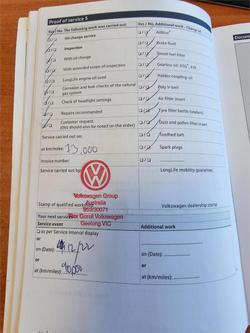 Proof of service 5
Yes / No The following work was carried out:
Yes / No Additional work
Oil change service
Inspection
With oil change
With extended scope of inspection
LongLife engine oil used
Corrosion and leak checks of the natural gas system
Check of headlight settings
Repairs recommended
Customer request
(this should also be noted on the order)
AdBlue
Brake fluid
Diesel fuel filter
Haldex coupling oil
Poly V-belt
Air filter insert
Dust and pollen filter insert
Toothed belt
Spark plugs
Service carried out on:
at km/miles:
Invoice number:
Service carried out
LongLife mobility guarantee:
Volkswagen Group
Australia
Rex Gorell Volkswagen
Geelong VIC
Stamp of qualified
Volkswagen dealership stamp
Your next service
Service event
Additional work
as per Service interval display
or
on (Date):
12/22
or
at (km/miles):
on (Date):
or
at (km/miles):